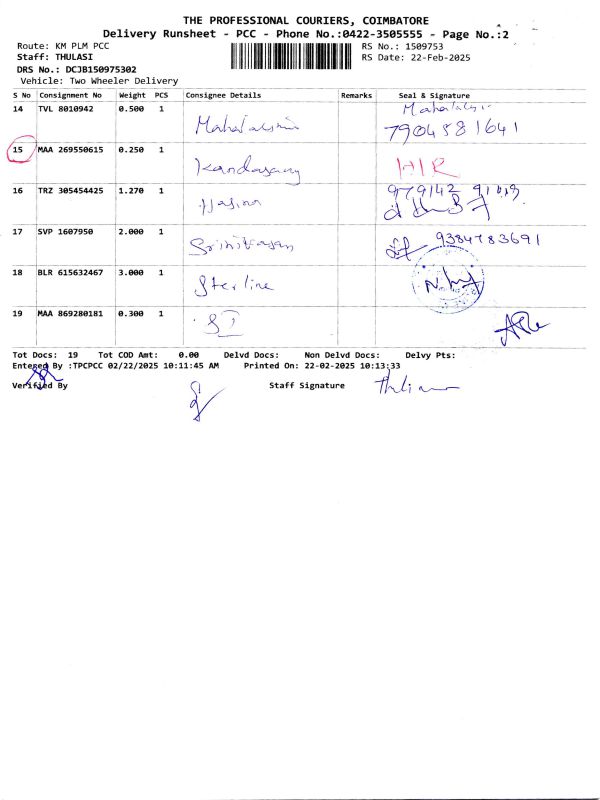 THE PROFESSIONAL COURIERS, COIMBATORE
Delivery Runsheet - PCC - Phone No.:0422-3505555 - Page No.:2
Route: KM PLM PCC
RS No.: 1509753
Staff: THULASI
RS Date: 22-Feb-2025
DRS No.: DCJB150975302
Vehicle: Two Wheeler Delivery
S No Consignment No Weight PCS Consignee Details Remarks Seal & Signature
14 TVL 8010942 0.500 1 Mahalaksmi 7904581641
15 MAA 269550615 0.250 1 Kandasamy
16 TRZ 305454425 1.270 1 Hasina
17 SVP 1607950 2.000 1 Srinivasan 9384783691
18 BLR 615632467 3.000 1 Sterline
19 MAA 869280181 0.300 1
Tot Docs: 19 Tot COD Amt: 0.00 Delvd Docs: Non Delvd Docs: Delvy Pts:
Entered By :TPCPCC 02/22/2025 10:11:45 AM Printed On: 22-02-2025 10:13:33
Verified By Staff Signature